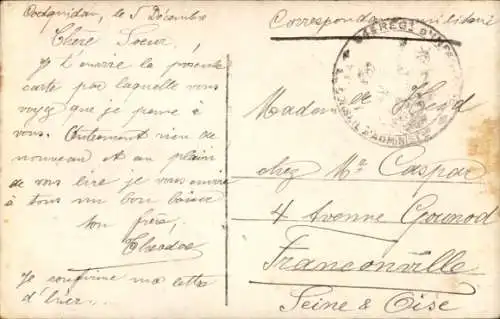 Coëtquidan, le 5 Décembre
Chère Soeur,
Je t'envoie la présente
carte par laquelle vous
voyez que je pense à
vous. Autrement rien de
nouveau et au plaisir
de vous lire je vous envoie
à tous un bon baiser
ton frère,
Je confirme ma lettre
d'hier.
Correspondance militaire
Madame de
chez Mr Caspar
4 Avenue Gounod
Franconville
Seine & Oise